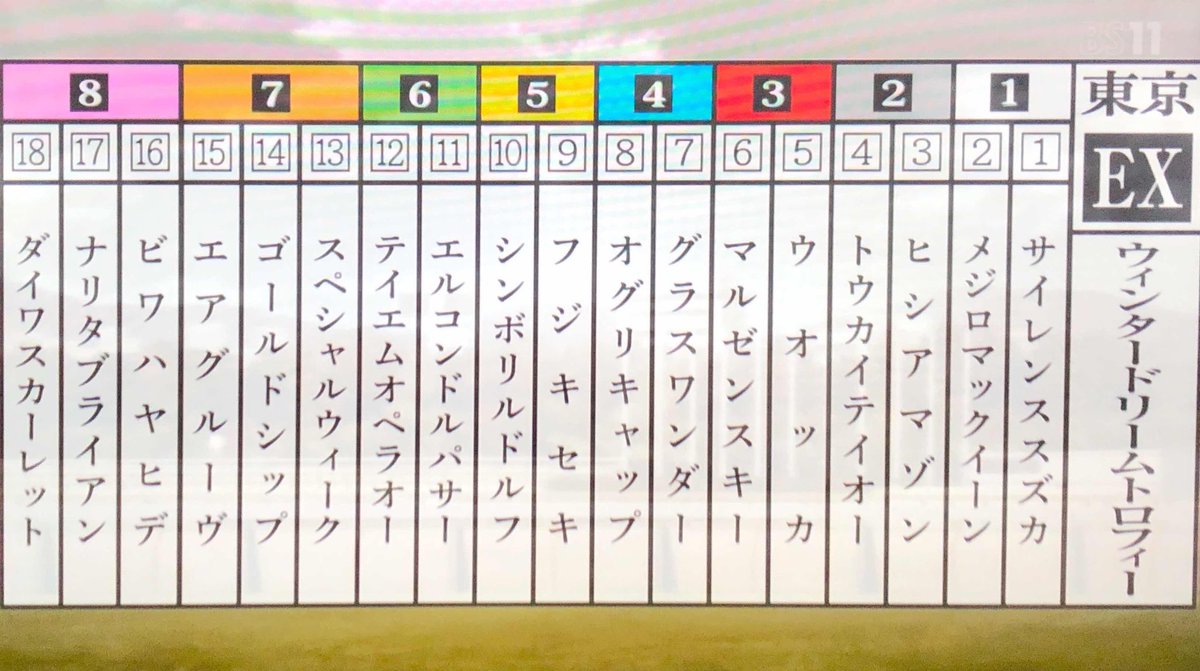 BS11
東京
EX
ウィンタードリームトロフィー
1
1
サイレンススズカ
2
メジロマックイーン
2
3
ヒシアマゾン
4
トウカイテイオー
3
5
ウオッカ
6
マルゼンスキー
4
7
グラスワンダー
8
オグリキャップ
5
9
フジキセキ
10
シンボリルドルフ
6
11
エルコンドルパサー
12
テイエムオペラオー
7
13
スペシャルウィーク
14
ゴールドシップ
15
エアグルーヴ
8
16
ビワハヤヒデ
17
ナリタブライアン
18
ダイワスカーレット